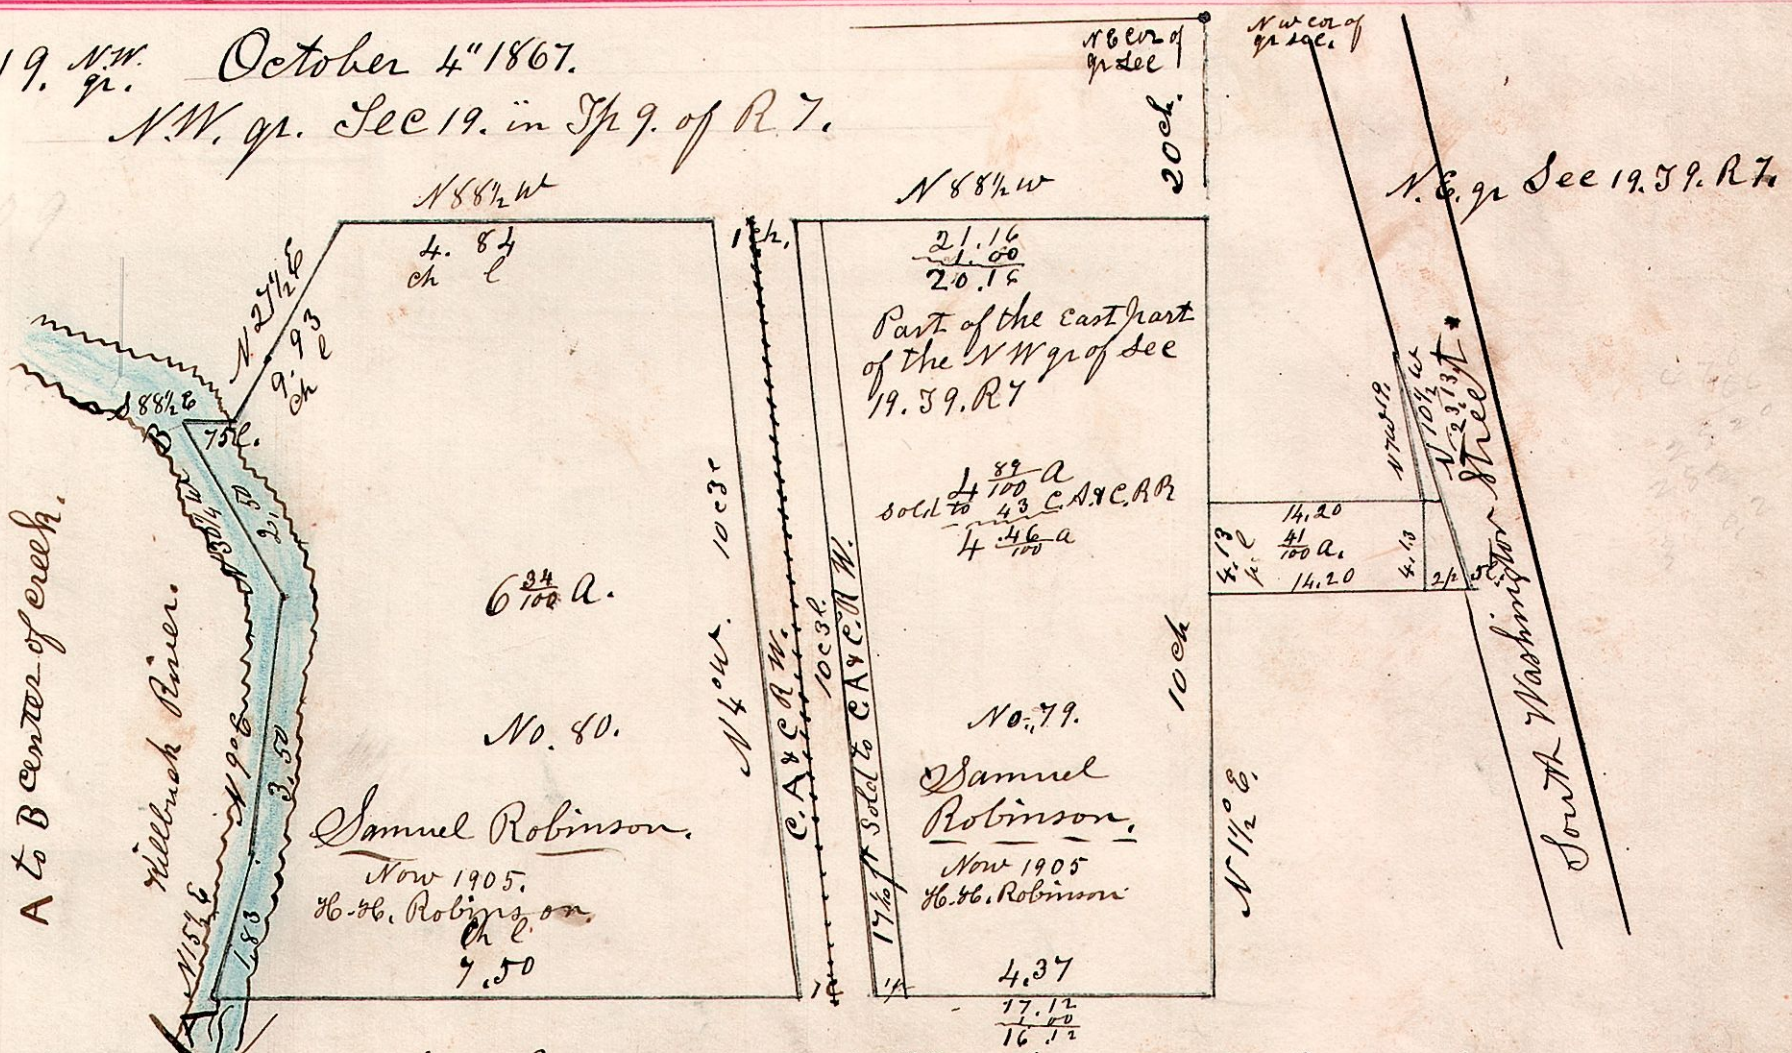 19. N.W. qr. October 4" 1867.
N.W. qr. Sec 19. in Tp 9. of R 7.
N E cor of
qr sec
N W cor of
qr sec.
20 ch.
N.E. qr Sec 19. T 9. R 7.
N 88½ W
4. 84
ch l
N 27½ E
9. 93
ch l
S 88½ E
75 l.
B
N 30¼ W
2.50
N 9° E
3.50
N 15½ E
1.83
A
Killbuck River.
A to B center of creek.
6 34/100 A.
No. 80.
Samuel Robinson.
Now 1905.
H. H. Robinson.
ch l
7.50
1 ch.
10 c 3 l
N 4° W.
C. A & C R W.
10 c 3 l.
Sold to C. A & C. R W.
N 88½ W
21.16
1.00
20.16
Part of the east part
of the N W qr of Sec
19. T 9. R 7
4 89/100 A
sold to 43 C. A. & C. R R
4 .46/100 a
No. 79.
Samuel
Robinson.
Now 1905
H. H. Robinson
4.37
17.12
1.00
16.12
10 ch
N 1½° E.
14.20
41/100 A.
14.20
4.13
4.13
N 10½ W
South Washington Street